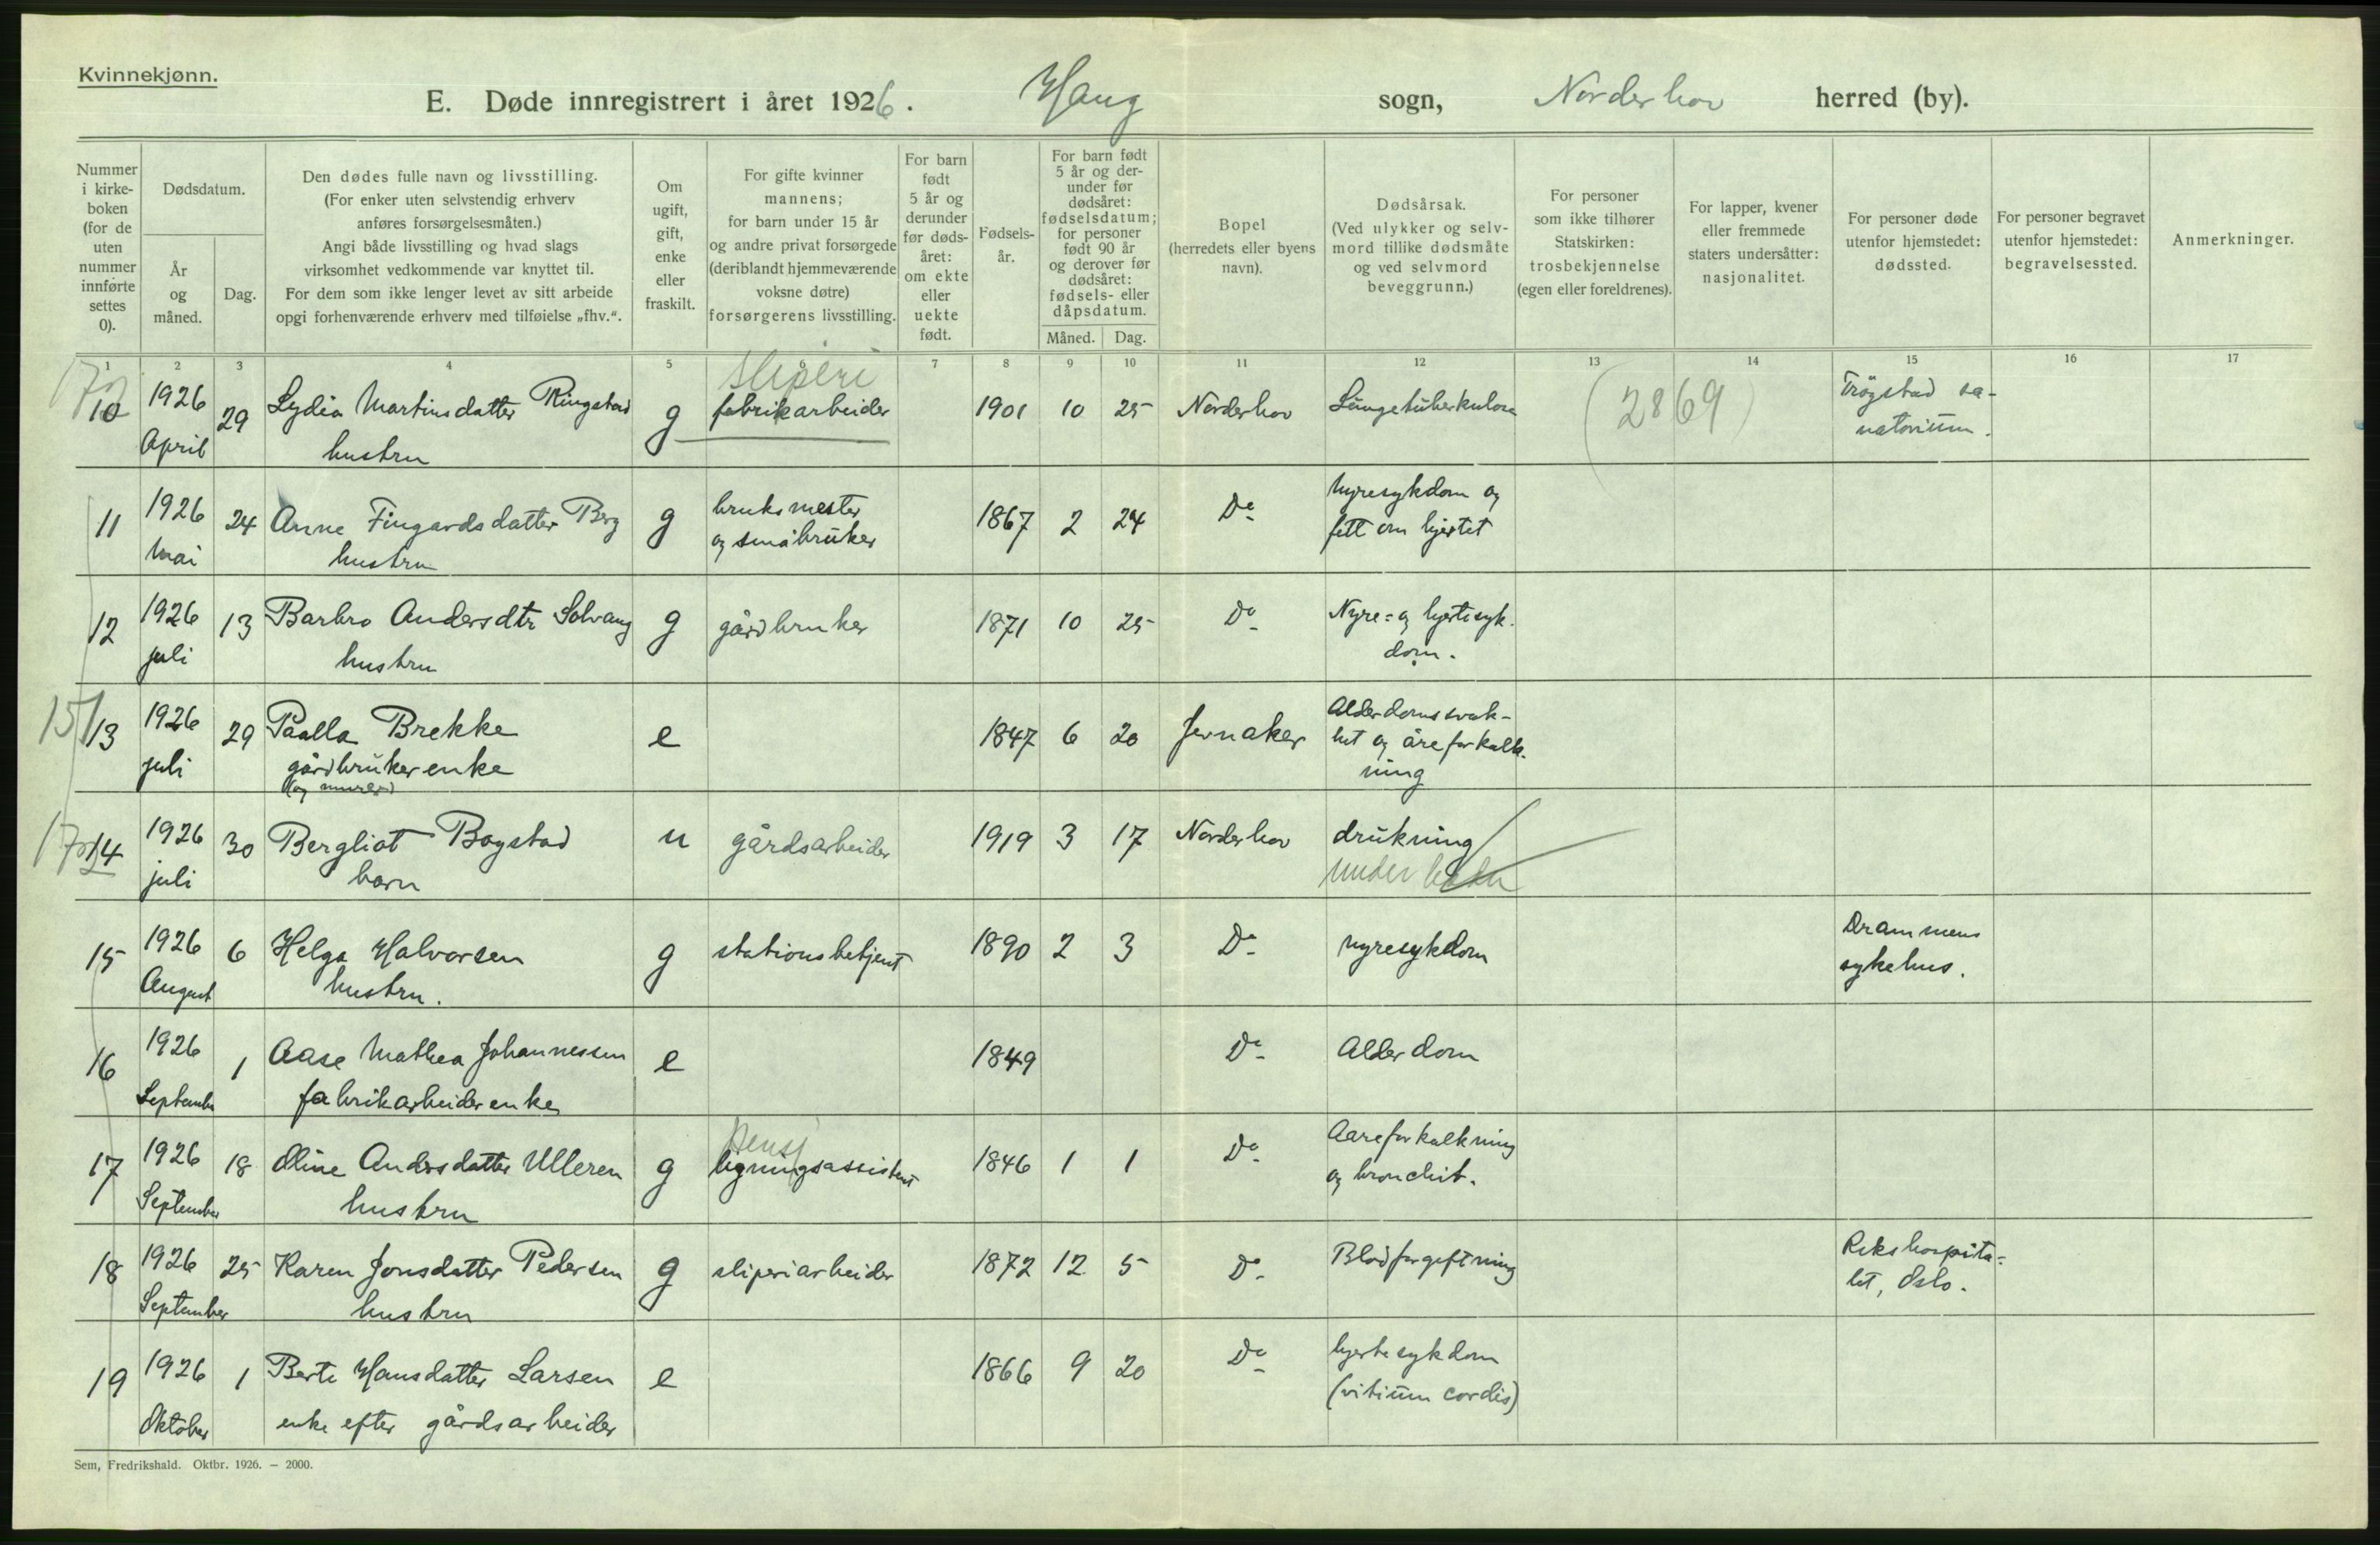 Kvinnekjønn.
E. Døde innregistrert i året 1926. Haug sogn, Norderhov herred (by).
Nummer i kirke- boken (for de uten nummer innførte settes 0).
Dødsdatum.
År og måned.
Dag.
Den dødes fulle navn og livsstilling.
(For enker uten selvstendig erhverv
anføres forsørgelsesmåten.)
Angi både livsstilling og hvad slags
virksomhet vedkommende var knyttet til.
For dem som ikke lenger levet av sitt arbeide
opgi forhenværende erhverv med tilføielse „fhv.“.
Om ugift, gift, enke eller fraskilt.
For gifte kvinner
mannens;
for barn under 15 år
og andre privat forsørgede
(deriblandt hjemmeværende
voksne døtre)
forsørgerens livsstilling.
For barn født 5 år og derunder før døds- året: om ekte eller uekte født.
Fødsels- år.
For barn født
5 år og der-
under før
dødsåret:
fødselsdatum;
for personer
født 90 år
og derover før
dødsåret:
fødsels- eller
dåpsdatum.
Måned. Dag.
Bopel
(herredets eller byens
navn).
Dødsårsak.
(Ved ulykker og selv-
mord tillike dødsmåte
og ved selvmord
beveggrunn.)
For personer
som ikke tilhører
Statskirken:
trosbekjennelse
(egen eller foreldrenes).
For lapper, kvener
eller fremmede
staters undersåtter:
nasjonalitet.
For personer døde
utenfor hjemstedet:
dødssted.
For personer begravet
utenfor hjemstedet:
begravelsessted.
Anmerkninger.
1 2 3 4 5 6 7 8 9 10 11 12 13 14 15 16 17
sliperi
10 1926 April 29 Lydia Martinsdatter Ringstad g fabrikarbeider 1901 10 25 Norderhov Lungetuberkulose (2869) Trøgstad sa-
hustru natorium.
11 1926 Mai 24 Anne Fingardsdatter Berg g bruksmester 1867 2 24 Do Nyresykdom og
hustru og småbruker fett om hjertet
12 1926 juli 13 Barbro Andersdtr Solvang g gårdbruker 1871 10 25 Do Nyre= og hjertesyk-
hustru dom.
151
13 1926 juli 29 Paalla Brekke e 1847 6 20 Jevnaker Alderdomssvak-
gårdbrukerenke het og åreforkalk-
(og murer) ning
14 1926 juli 30 Bergliot Bogstad u gårdsarbeider 1919 3 17 Norderhov drukning
barn under
15 1926 August 6 Helga Halvorsen g stationsbetjent 1890 2 3 Do nyresykdom Drammens
hustru. sykehus.
16 1926 September 1 Aase Mathea Johannessen e 1849 Do Alderdom
fabrikarbeiderenke
pensj
17 1926 September 18 Oline Andersdatter Ulleren g ligningsassistent 1846 1 1 Do Aareforkalkning
hustru og bronchit.
18 1926 September 25 Karen Jonsdatter Pedersen g sliperiarbeider 1872 12 5 Do Blodforgiftning Rikshospita=
hustru let, Oslo.
19 1926 Oktober 1 Berte Hansdatter Larsen e 1866 9 20 Do hjertesykdom
enke efter gårdsarbeider (vitium cordis)
Sem, Fredrikshald. Oktbr. 1926. — 2000.